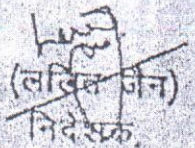 (ललित जैन)
निदेशक